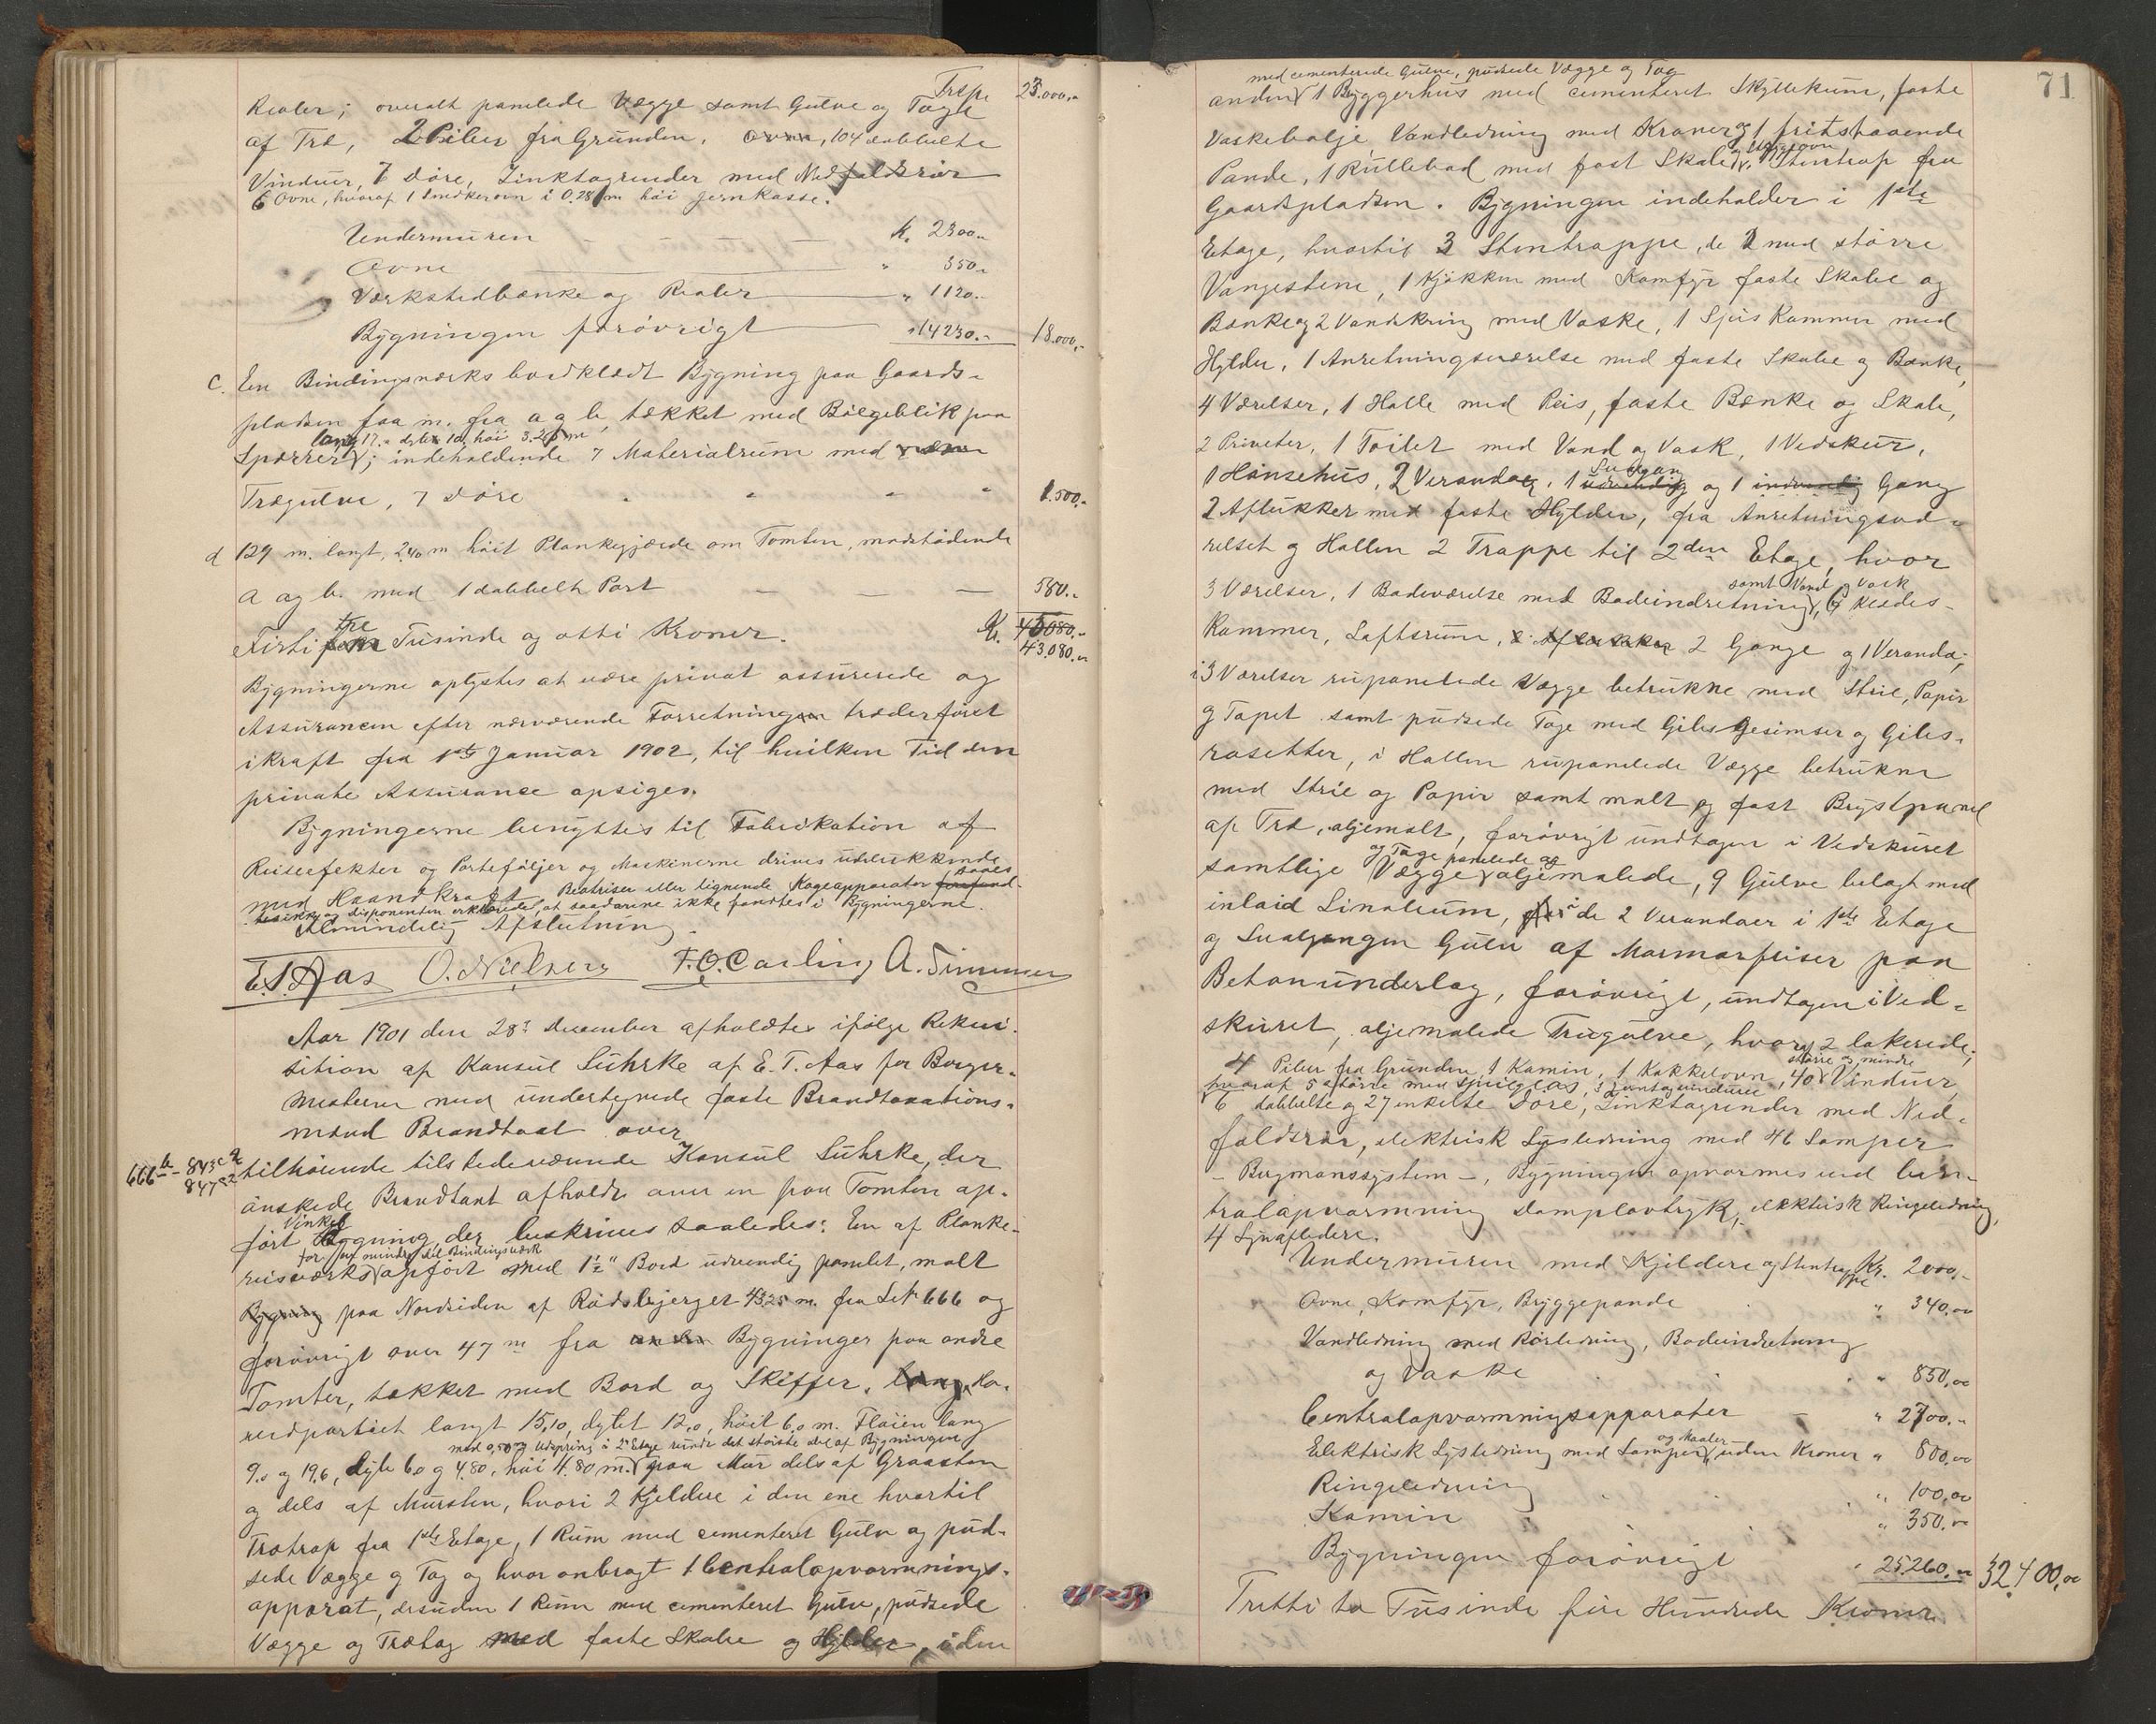 Trapper 23.000,-
Realer; overalt panelede Vægge samt Gulve og Tagte
af Træ, 2 Piber fra Grunden, 104 dobbelte
Vinduer, 7 Døre, Zinktagrender med Nedfaldsrør
6 Ovne, hvoraf 1 Snedkerovn i 0.28 m høi Jernkasse.
Undermuren — — — — k. 2300.-
Ovne — " 350.-
Værkstedbænke og Realer — " 1120.-
Bygningen forøvrigt — " 14230.- 18.000,-
c. En Bindingsværks bordklædt Bygning paa Gaards-
pladsen faa m. fra a og b, tækket med Bølgeblik paa
lang 17.0 dyb 1.0, høi 3.20 m
Spærrer; indeholdende 7 Materialrum med
Trægulve, 7 Døre " " " " 1.500.-
d 129 m. langt, 2.40 m høit Plankegjærde om Tomten, modstødende
a og b. med 1 dobbelt Port — — — 580.-
tre
Firti fem Tusinde og otti Kroner. Kr. 45080.-
43.080.-
Bygningerne oplystes at være privat assurerede og
Assurancen efter nærværende Forretning træder først
ikraft fra 1ste Januar 1902, til hvilken Tid den
private Assurance opsiges.
Bygningerne benyttes til Fabrikation af
Reiseefekter og Porteføljer og Maskinerne drives udelukkende
med Haandkraft. Beatriser eller lignende Kogeapparater
og Disponenten erklærede, at saadanne ikke fandtes i Bygningerne.
Almindelig Afslutning.
E.T. Aas O. Nielsen F.O. Carling A. Simmen
Aar 1901 den 28de December afholdtes ifølge Rekvi-
sition af Konsul Luhrke af E. T. Aas for Borger-
mesteren med undertegnede faste Brandtaxations-
mænd Brandtaxt over
666b - 843c2 tilhørende tilstedeværende Konsul Luhrke, der
847c2
ønskede Brandtaxt afholdt over en paa Tomten op-
Vinkel
ført Bygning, der beskrives saaledes: En af Planke-
for en mindre del Bindingsværk
reisværks opført med 1½" Bord udvendig panelet, malt
Bygning paa Nordsiden af Rødsbjerget 43.25 m. fra Lt 666 og
forøvrigt over 47 m fra Bygninger paa andre
Tomter, tækket med Bord og Skiffer. lang Ho-
vedpartiet langt 15,10, dybt 12,0, høit 6,0 m. Fløien lang
med 0,50 m Udspring i 2 Etage rundt det største del af Bygningen
9.0 og 19.6, dyb 6.0 og 4.80, høi 4.80 m. paa Mur dels af Graasten
og dels af Mursten, hvori 2 Kjeldere i den ene hvortil
Trætrap fra 1ste Etage, 1 Rum med cementeret Gulv og pud-
sede Vægge og Tag og hvor anbragt 1 Centralopvarmnings-
apparat, desuden 1 Rum med cementeret Gulv, pudsede
Vægge og Trætag med faste Skabe og Hylder, i den
71
med cementerede Gulve, pudsede Vægge og Tag
anden 1 Bryggerhus med cementeret Skyllekum, faste
Vaskebalje, Vandledning med Kraner og 1 fritstaaende
og Strygeovn
Pande, 1 Rullebod med fast Skabe, Stentrap fra
Gaardspladsen. Bygningen indeholder i 1ste
Etage, hvortil 3 Stentrappe, de 2 med større
Vangestene, 1 Kjøkken med Komfyr faste Skabe og
Bænke og 2 Vandkring med Vaske, 1 Spiskammer med
Hylder, 1 Anretningsværelse med faste Skabe og Bænke,
4 Værelser, 1 Halle med Peis, faste Bænke og Skabe,
2 Priveter, 1 Toilet med Vand og Vask, 1 Vedskur,
Svalgang
1 Hønsehus, 2 Verandaer, 1 udvendig og 1 indvendig Gang
2 Aflukker med faste Hylder, fra Anretningsvæ-
relset og Hallen 2 Trappe til 2den Etage, hvor
samt Vand og Vask
3 Værelser, 1 Badeværelse med Badeindretning, 6 Klædes-
Kammer, Loftsrum, 2 Gange og 1 Veranda;
i 3 Værelser rupanelede Vægge betrukne med Strie, Papir
og Tapet samt pudsede Tage med Gibsgesimser og Gibs-
rosetter, i Hallen rupanelede Vægge betrukne
med Strie og Papir samt malt og fast Brystpanel
af Træ, oljemalt, forøvrigt undtagen i Vedskuret
og Tage panelede og
samtlige Vægge oljemalede, 9 Gulve belagt med
inlaid Linoleum, i de 2 Verandaer i 1ste Etage
og Svalgangen Gulv af Marmorfliser paa
Betonunderlag, forøvrigt, undtagen i Ved-
skuret, oljemalede Trægulve, hvoraf 2 lakerede;
større og mindre
4 Piber fra Grunden, 1 Kamin, 1 Kakkelovn, 40 Vinduer,
hvoraf 5 større med Speilglas, 3 Jerntagvinduer
6 dobbelte og 27 enkelte Døre, Zinktagrender med Ned-
faldsrør, elektrisk Lysledning med 46 Lamper
- Bergmanssystem -, Bygningen opvarmes ved Cen-
tralopvarmning Damplavtryk, elektrisk Ringeledning,
4 Lynafledere.
Undermuren med Kjeldere og Stentrappe Kr. 2000,-
Ovne, Komfyr, Bryggepande " 340,00
Vandledning med Rørledning, Badeindretning
og Vaske " 850,00
Centralopvarmningsapparater — " 2700.-
og Maaler
Elektrisk Lysledning med Lamper, uden Kroner " 800,00
Ringeledning " 100,00
Kamin " 350,00
Bygningen forøvrigt " 25260,00 32.400,00
Tretti to Tusinde fire Hundrede Kroner.